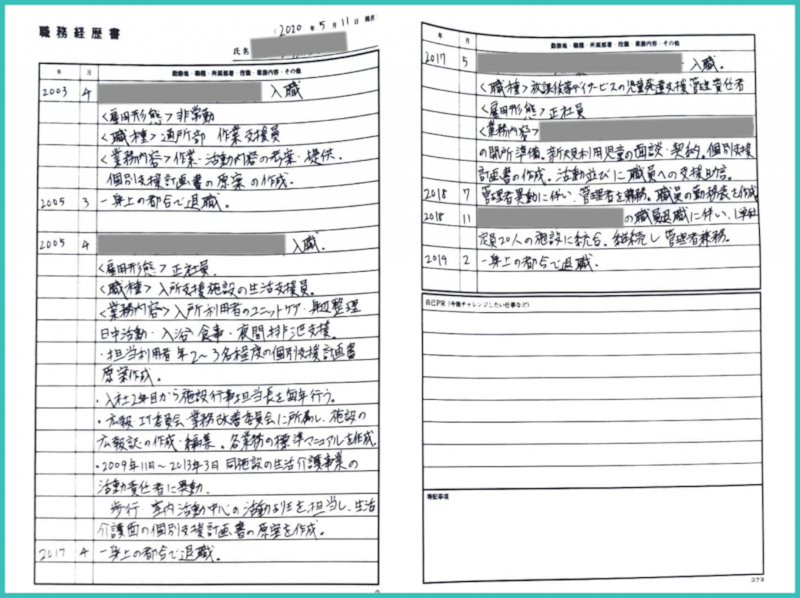 職務経歴書
2020年5月11日 現在
氏名
年 月 勤務地・職種・所属部署・役職・業務内容・その他
2003 4 入職
<雇用形態>非常勤
<職種>通所部 作業支援員
<業務内容>作業・活動内容の考案・提供.
個別支援計画書の原案の作成.
2005 3 一身上の都合で退職.
2005 4 入職.
<雇用形態>正社員.
<職種>入所支援施設の生活支援員.
<業務内容>入所利用者のユニットケア・身辺整理
日中活動・入浴・食事・夜間排泄支援.
・担当利用者年2〜3名程度の個別支援計画書
原案作成.
・入社2年目から施設行事担当長を毎年行う.
・広報、IT委員会、業務改善委員会に所属し、施設の
広報誌の作成・編集。各業務の標準マニュアルを作成
・2009年11月〜2013年3月 同施設の生活介護事業の
活動責任者に異動.
歩行・室内活動中心の活動を担当し、生活
介護面の個別支援計画書の原案を作成。
2017 4 一身上の都合で退職.
年 月 勤務地・職種・所属部署・役職・業務内容・その他
2017 5 入職.
<職種>放課後等デイサービスの児童発達支援管理責任者
<雇用形態>正社員
<業務内容>
の開所準備。新規利用児童の面談・契約。個別支援
計画書の作成。活動並びに職員への支援助言。
2018 7 管理者異動に伴い、管理者を兼務。職員の勤務表を作成
2018 11 の職員退職に伴い、1単位
定員20人の施設に統合。継続し管理者兼務。
2019 2 一身上の都合で退職.
自己PR(今後チャレンジしたい仕事など)
特記事項
コクヨ